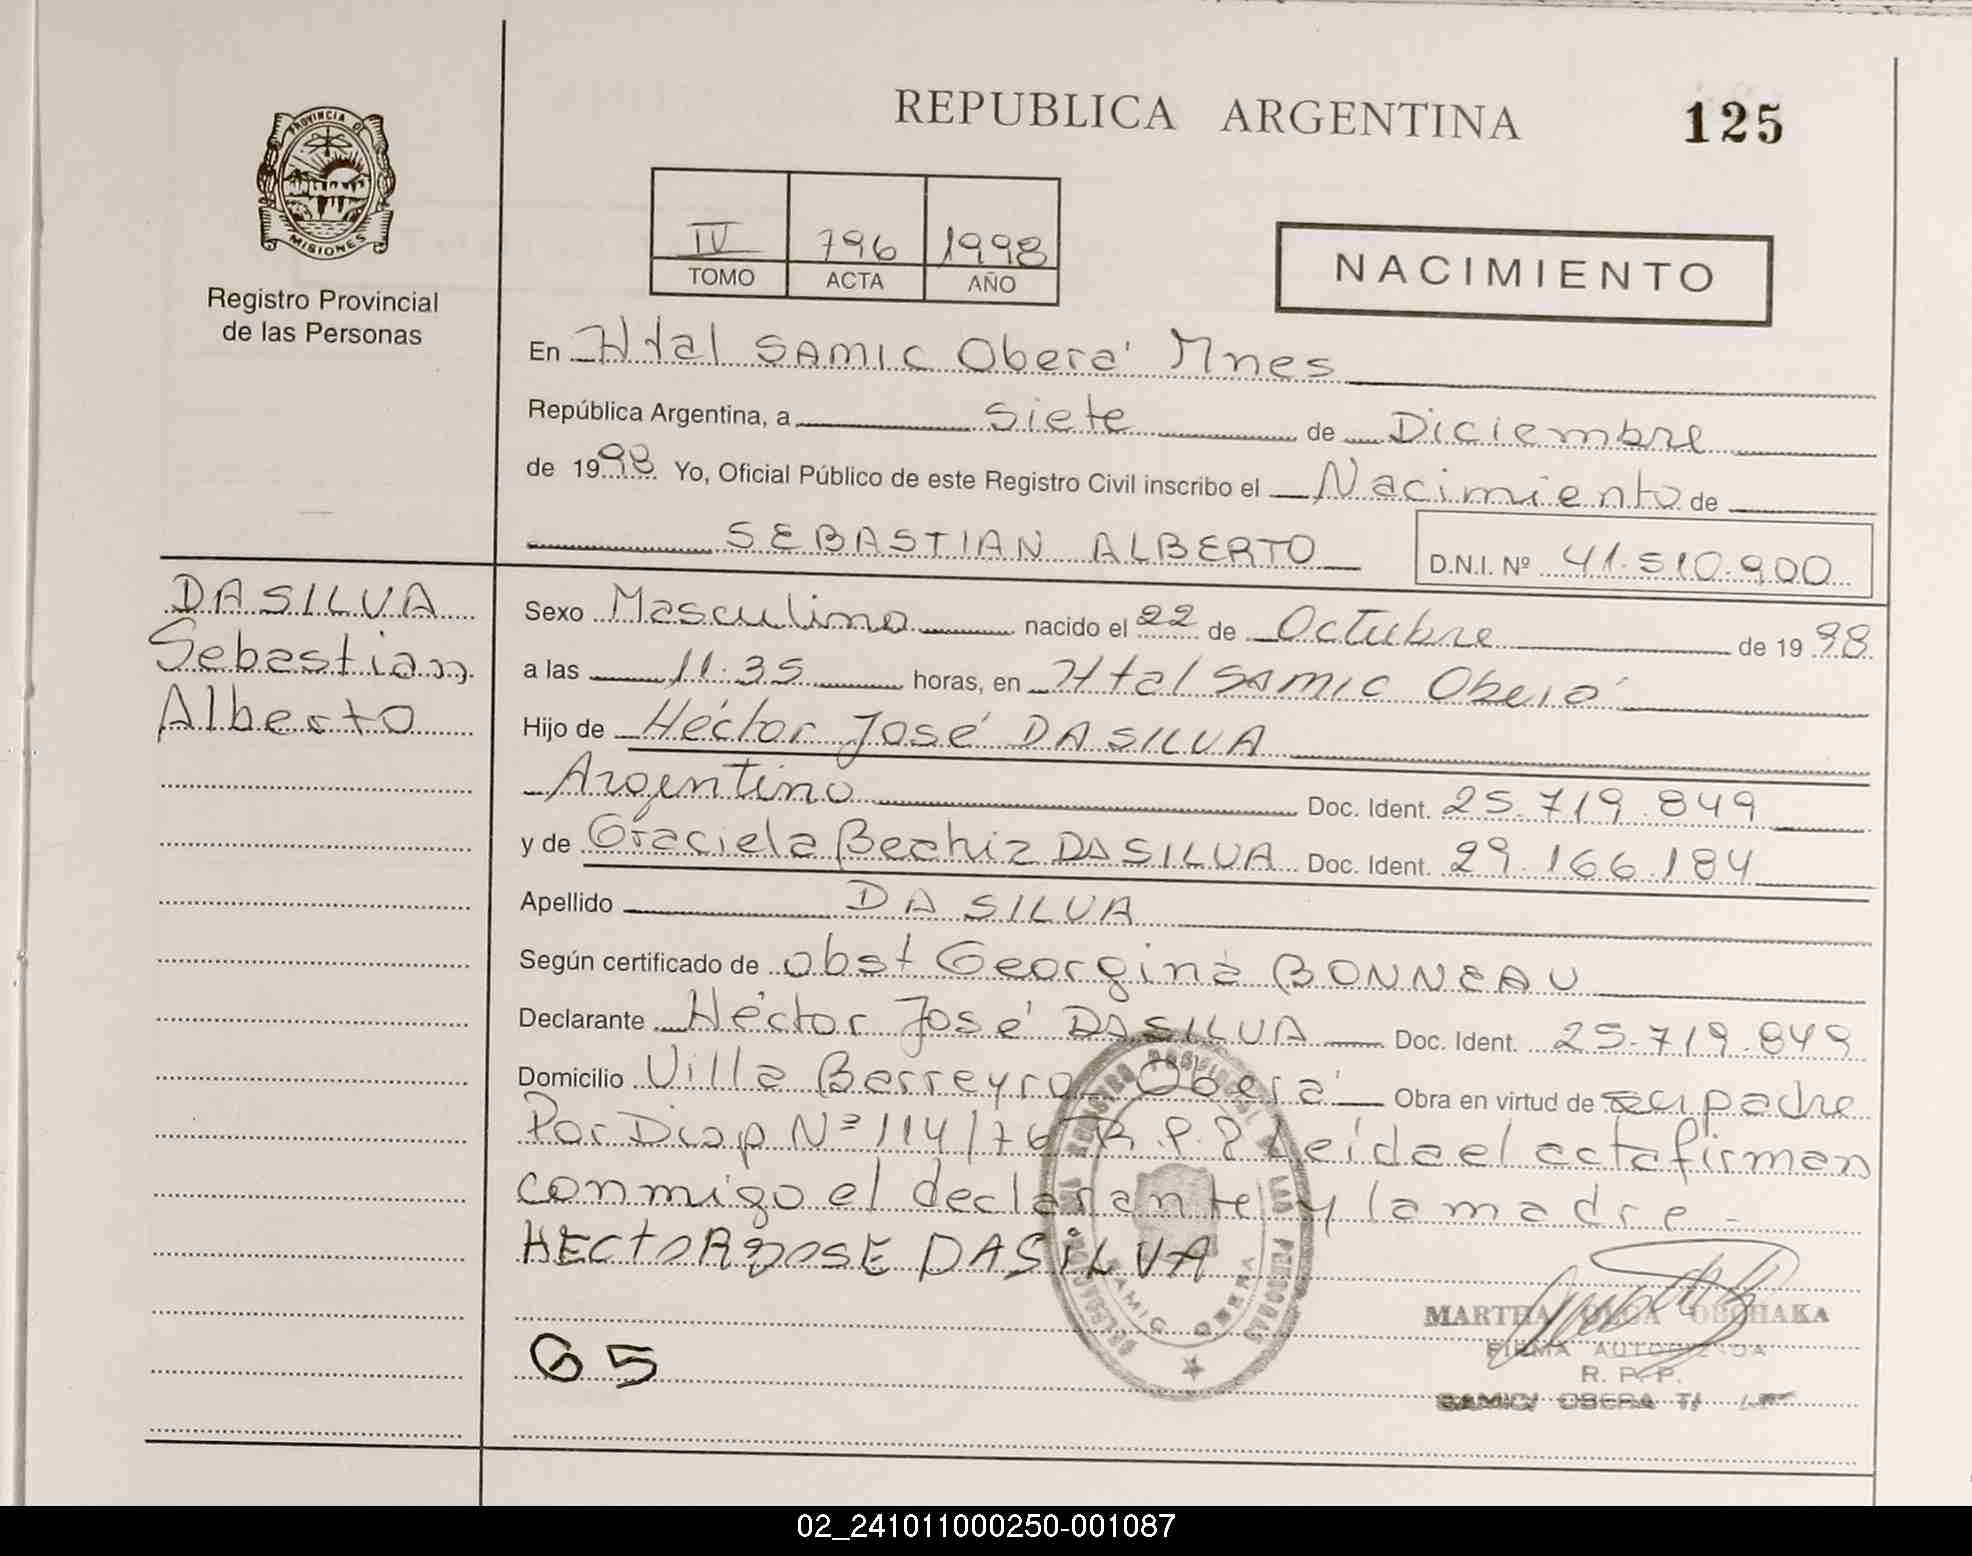 REPUBLICA ARGENTINA
125
PROVINCIA DE
MISIONES
Registro Provincial
de las Personas
IV 796 1998
TOMO ACTA AÑO
NACIMIENTO
En Htal SAMIC Oberá Mnes
República Argentina, a siete de Diciembre
de 1998 Yo, Oficial Público de este Registro Civil inscribo el Nacimiento de
SEBASTIAN ALBERTO D.N.I. Nº 41.510.900
DA SILVA
Sebastian
Alberto
Sexo Masculino nacido el 22 de Octubre de 1998
a las 11.35 horas, en Htal SAMIC Oberá
Hijo de Héctor José DA SILVA
Argentino Doc. Ident. 25.719.849
y de Graciela Beatriz DA SILVA Doc. Ident. 29.166.184
Apellido DA SILVA
Según certificado de obst Georgina BONNEAU
Declarante Héctor José DA SILVA Doc. Ident. 25.719.849
Domicilio Villa Barreyro Oberá Obra en virtud de su padre
Por Disp Nº 114/76 R.P.P Leída el acta firman
conmigo el declarante y la madre -
HECTOR JOSE DA SILVA
G 5
REGISTRO PROVINCIAL DE LAS PERSONAS
SAMIC OBERA
MARTHA OLGA
FIRMA AUTORIZADA
R. P. P.
SAMIC OBERA
02_241011000250-001087